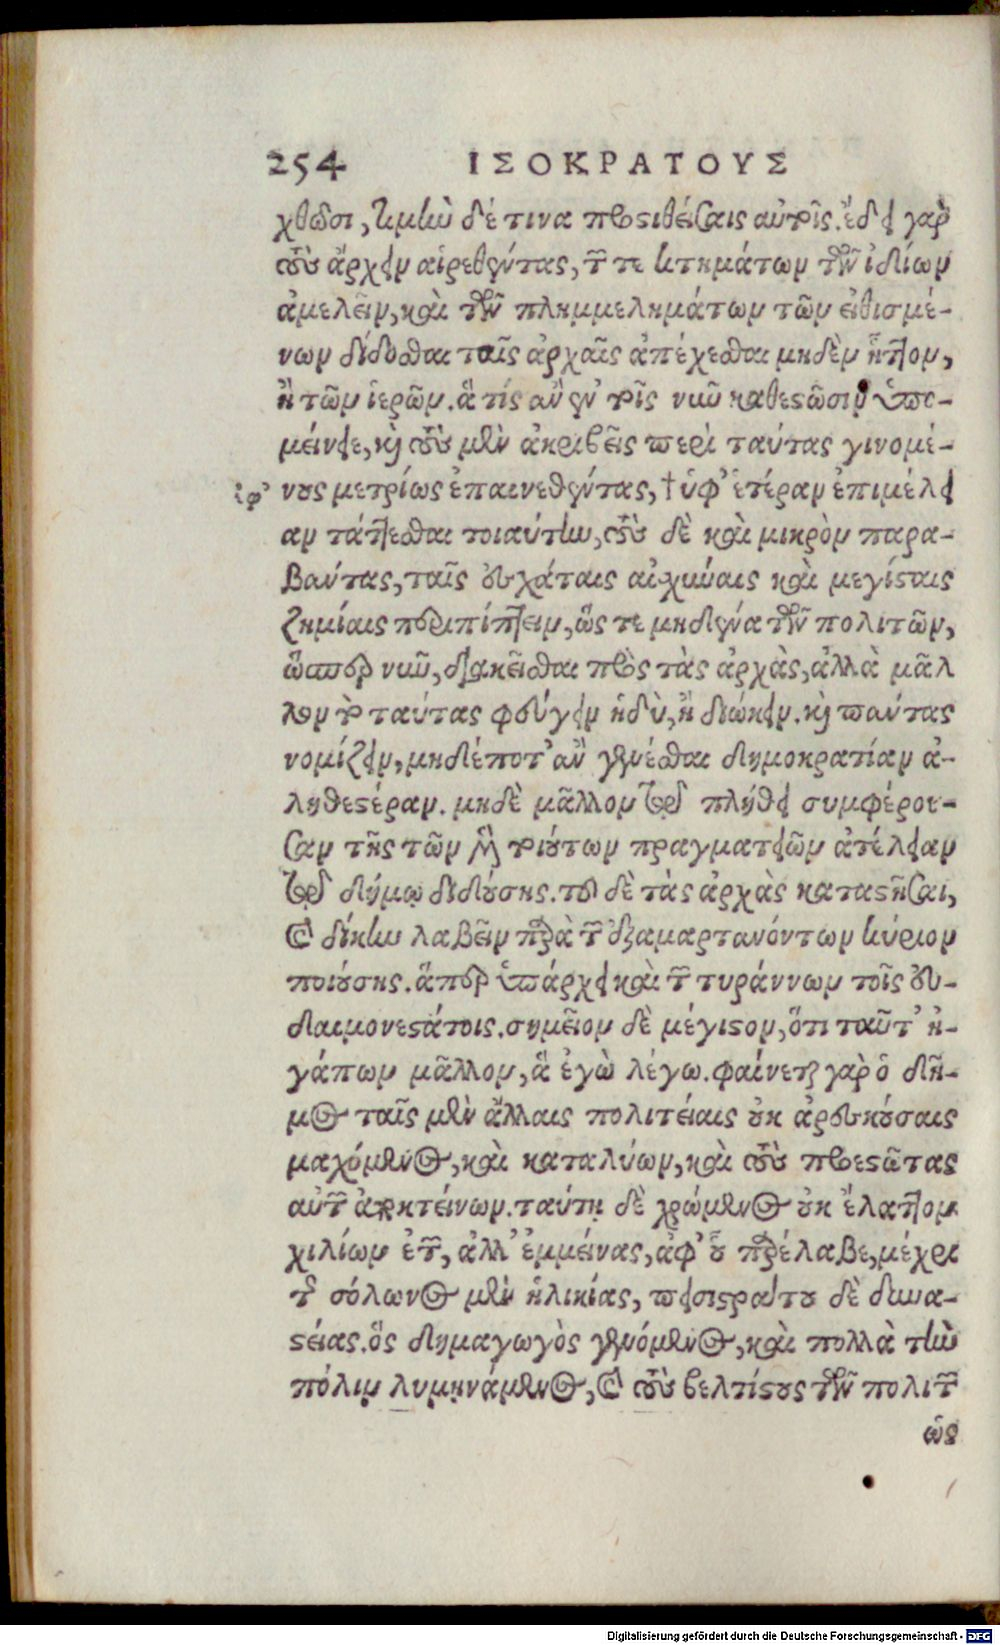 254 ΙΣΟΚΡΑΤΟΥΣ
χθῶσι, τιμὴν δέ τινα προσθέσαις αὐτοῖς. ἔδει γὰρ
τοὺς ἄρχειν αἱρεθέντας, τῶν τε κτημάτων τῶν ἰδίων
ἀμελεῖν, καὶ τῶν πλημμελημάτων τῶν εἰθισμέ-
νων δίδοσθαι ταῖς ἀρχαῖς ἀπέχεσθαι μηδὲν ἧττον,
ἢ τῶν ἱερῶν. ἃ τίς ἂν ἐν τοῖς νῦν καθεστῶσιν ὑπο-
μείνειε, καὶ τοὺς μὲν ἀκριβεῖς περὶ ταύτας γινομέ-
ἐφ’ νους μετρίως ἐπαινεθέντας, † ὑφ’ ἑτέραν ἐπιμέλει
αν τάττεσθαι τοιαύτην, τοὺς δὲ καὶ μικρὸν παρα-
βάντας, ταῖς ἐσχάταις αἰσχύναις καὶ μεγίσταις
ζημίαις περιπίπτειν, ὥς τε μηδένα τῶν πολιτῶν,
ὥσπερ νῦν, διακεῖσθαι πρὸς τὰς ἀρχὰς, ἀλλὰ μᾶλ
λον τὸ ταύτας φεύγειν ἡδὺ, ἢ διώκειν. καὶ πάντας
νομίζειν, μηδέποτ’ ἂν γενέσθαι δημοκρατίαν ἀ-
ληθεστέραν. μηδὲ μᾶλλον τῷ πλήθει συμφέρου-
σαν τῆς τῶν μὲν τοιούτων πραγματειῶν ἀτέλειαν
τῷ δήμῳ διδούσης. τοῦ δὲ τὰς ἀρχὰς καταστῆσαι,
καὶ δίκην λαβεῖν παρὰ τῶν ἐξαμαρτανόντων κύριον
ποιούσης. ἅπερ ὑπάρχει καὶ τῶν τυράννων τοῖς εὐ-
δαιμονεστάτοις. σημεῖον δὲ μέγιστον, ὅτι ταῦτ’ ἠ-
γάπων μᾶλλον, ἃ ἐγὼ λέγω. φαίνεται γὰρ ὁ δῆ-
μος ταῖς μὲν ἄλλαις πολιτείαις οὐκ ἀρεσκούσαις
μαχόμενος, καὶ καταλύων, καὶ τοὺς προεστῶτας
αὐτῶν ἀποκτείνων. ταύτῃ δὲ χρώμενος οὐκ ἔλαττον
χιλίων ἐτῶν, ἀλλ’ ἐμμείνας, ἀφ’ οὗ παρέλαβε, μέχρι
τῆς σόλωνος μὲν ἡλικίας, πεισιστράτου δὲ δυνα-
στείας. ὃς δημαγωγὸς γενόμενος, καὶ πολλὰ τὴν
πόλιν λυμηνάμενος, καὶ τοὺς βελτίστους τῶν πολιτῶν
ὡς
Digitalisierung gefördert durch die Deutsche Forschungsgemeinschaft - DFG